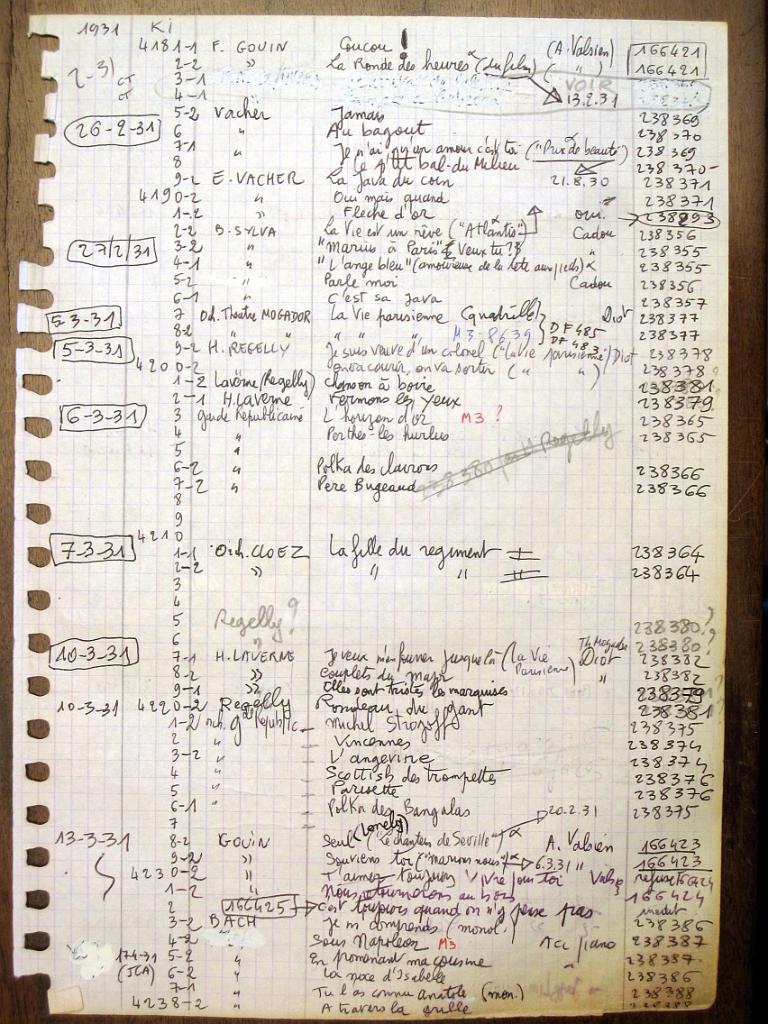 1931 Ki
4181-1 F. GOUIN Coucou ! (A. Valsien) 166421
2-2 " La Ronde des heures (du film) ( " ) 166421
2-3) CT 3-1 VOIR
CT 4-1 " 13.2.31
5-2 Vacher Jamais 238369
26-2-31 6 " Au bagout 238370
7-1 " Je n'ai qu'un amour c'est toi ("Prix de beauté") 238369
8 Le p'tit bal du Milieu 238370
9-2 E. VACHER La Java du coin 21.8.30 238371
4190-2 " Oui mais quand 238371
1-2 " Fleche d'or oui. 238293
2-2 B. SYLVA La Vie est un rêve ("Atlantis") Cadou 238356
27/2/31 3-2 " "Marius à Paris" Veux tu?? " 238355
4-1 " "L'ange bleu" (amoureuse de la tête aux pieds) 238355
5-2 " Parle moi Cadou 238356
6-1 " C'est sa Java 238357
5-3-31 7 Och. Theatre MOGADOR La Vie parisienne (quadrille) Diot 238377
8-2 " " " " M3-8639 DF 485 DF 483 238377
5-3-31 9-2 H. REGELLY Je suis veuve d'un colonel ("La vie parisienne") Diot 238378
4200-2 on va courir, on va sortir ( " " ) 238378
1-2 Laverne/Regelly) Chanson à boire 238381
2-1 H. LAVERNE Fermons les yeux 238379
6-3-31 3 garde Republicaine L'horizon d'or M3 ? 238365
4 " Porthos-les hurlus 238365
5 "
6-2 " Polka des clairons 238366
7-2 " Pere Bugeaud 238380 par H Regelly 238366
8
9
4210
7-3-31 1-1 Orch. CLOEZ La fille du regiment I 238364
2-2 " " " II 238364
3
4
5 Regelly? 238380?
6 ? Th Mogador 238380?
10-3-31 7-1 H. LAVERNE Je veux m'en fourrer jusque là (La Vie Parisienne) Diot 238382
8-2 " Couplets du Major " 238382
9-1 " Elles sont tristes les marquises 238379
10-3-31 4220-2 Regelly Rondeau du gant 238381
1-2 mch. gde republic. Michel Strogoff 238375
2 " Vincennes 238374
3-2 " L'angevine 238374
4 " Scottish des trompettes 238376
5 " Parisette 238376
6-1 " Polka des Bangalas 238375
7 20.2.31
13-3-31 8-2 GOUIN Seul (Lonely) ("Le chanteur de Seville") A. Valsien 166423
9-2 " Souviens toi ("marions nous") 6.3.31 " 166423
4230-2 " T'aimer toujours Vivre pour toi Vals refusé 166424
1-2 " Nous retournerons au bois 166424
2 166425 C'est toujours quand on n'y pense pas inedit
3-2 BACH Je m comprends (monol.) 238386
4-2 Sous Napoleon M3 Acc piano 238387
17-4-31 5-2 " En promenant ma cousine " 238387
(JCA) 6-2 " La noce d'Isabelle 238386
7-1 " Tu l'as connu anatole (mon.) 238388
4238-2 " A travers la grille 238388